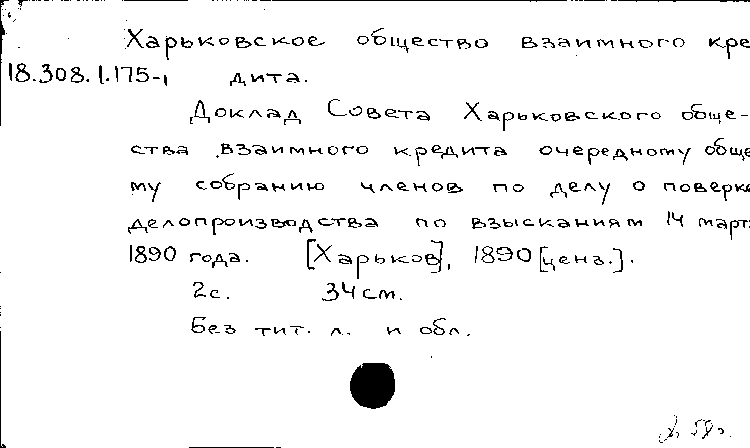 Харьковское общество взаимного кре
18.308.1.175-1 дита.
Доклад Совета Харьковского обще-
ства взаимного кредита очередному обще
му собранию членов по делу о поверке
делопроизводства по взысканиям 14 марта
1890 года. [Харьков], 1890 [ценз.].
2с. 34 см.
Без тит. л. и обл.